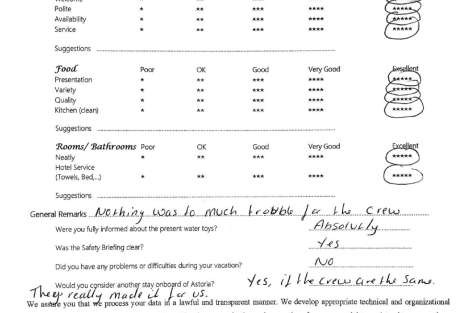 Polite * ** *** **** *****
Availability * ** *** **** *****
Service * ** *** **** *****
Suggestions
Food Poor OK Good Very Good Excellent
Presentation * ** *** **** *****
Variety * ** *** **** *****
Quality * ** *** **** *****
Kitchen (clean) * ** *** **** *****
Suggestions
Rooms/ Bathrooms Poor OK Good Very Good Excellent
Neatly * ** *** **** *****
Hotel Service
(Towels, Bed,..) * ** *** **** *****
Suggestions
General Remarks Nothing was to much trobble for the crew
Were you fully informed about the present water toys? Absolutly
Was the Safety Briefing clear? Yes
Did you have any problems or difficulties during your vacation? No
Would you consider another stay onboard of Astorie? Yes, if the crew are the same.
They really made it for us.
We assure you that we process your data in a lawful and transparent manner. We develop appropriate technical and organizational